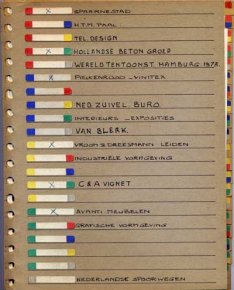 SPAARNESTAD
H.T.M. PAAL.
TEL. DESIGN
X HOLLANDSE BETON GROEP
WERELDTENTOONST. HAMBURG. 1973.
X PIEKENROOD _ VINITEX
NED. ZUIVEL. BURO.
INTERIEURS _ EXPOSITIES
VAN BLERK.
X VROOM & DREESMANN LEIDEN
INDUSTRIËLE VORMGEVING
X C & A VIGNET
X AVANTI MEUBELEN
GRAFISCHE VORMGEVING
NEDERLANDSE SPOORWEGEN